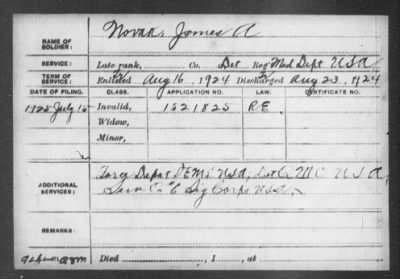 NAME OF SOLDIER: Novak, James A
SERVICE: Late rank, Co. Det Reg Med Dept USA
TERM OF SERVICE: Enlisted Aug 16, 1924 Discharged Aug 23, 1924
DATE OF FILING. CLASS. APPLICATION NO. LAW. CERTIFICATE NO.
1925 July 15 Invalid, 1521825 RE.
Widow,
Minor,
ADDITIONAL SERVICES: Depot USA, Det USA
Serv Co "C" Sig Corps USA.
REMARKS:
Died , 1 , at